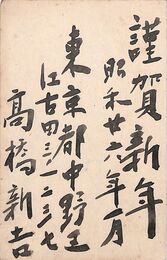 謹賀新年
昭和廿六年一月
東京都中野区
江古田三ノ一二三七
高橋新吉